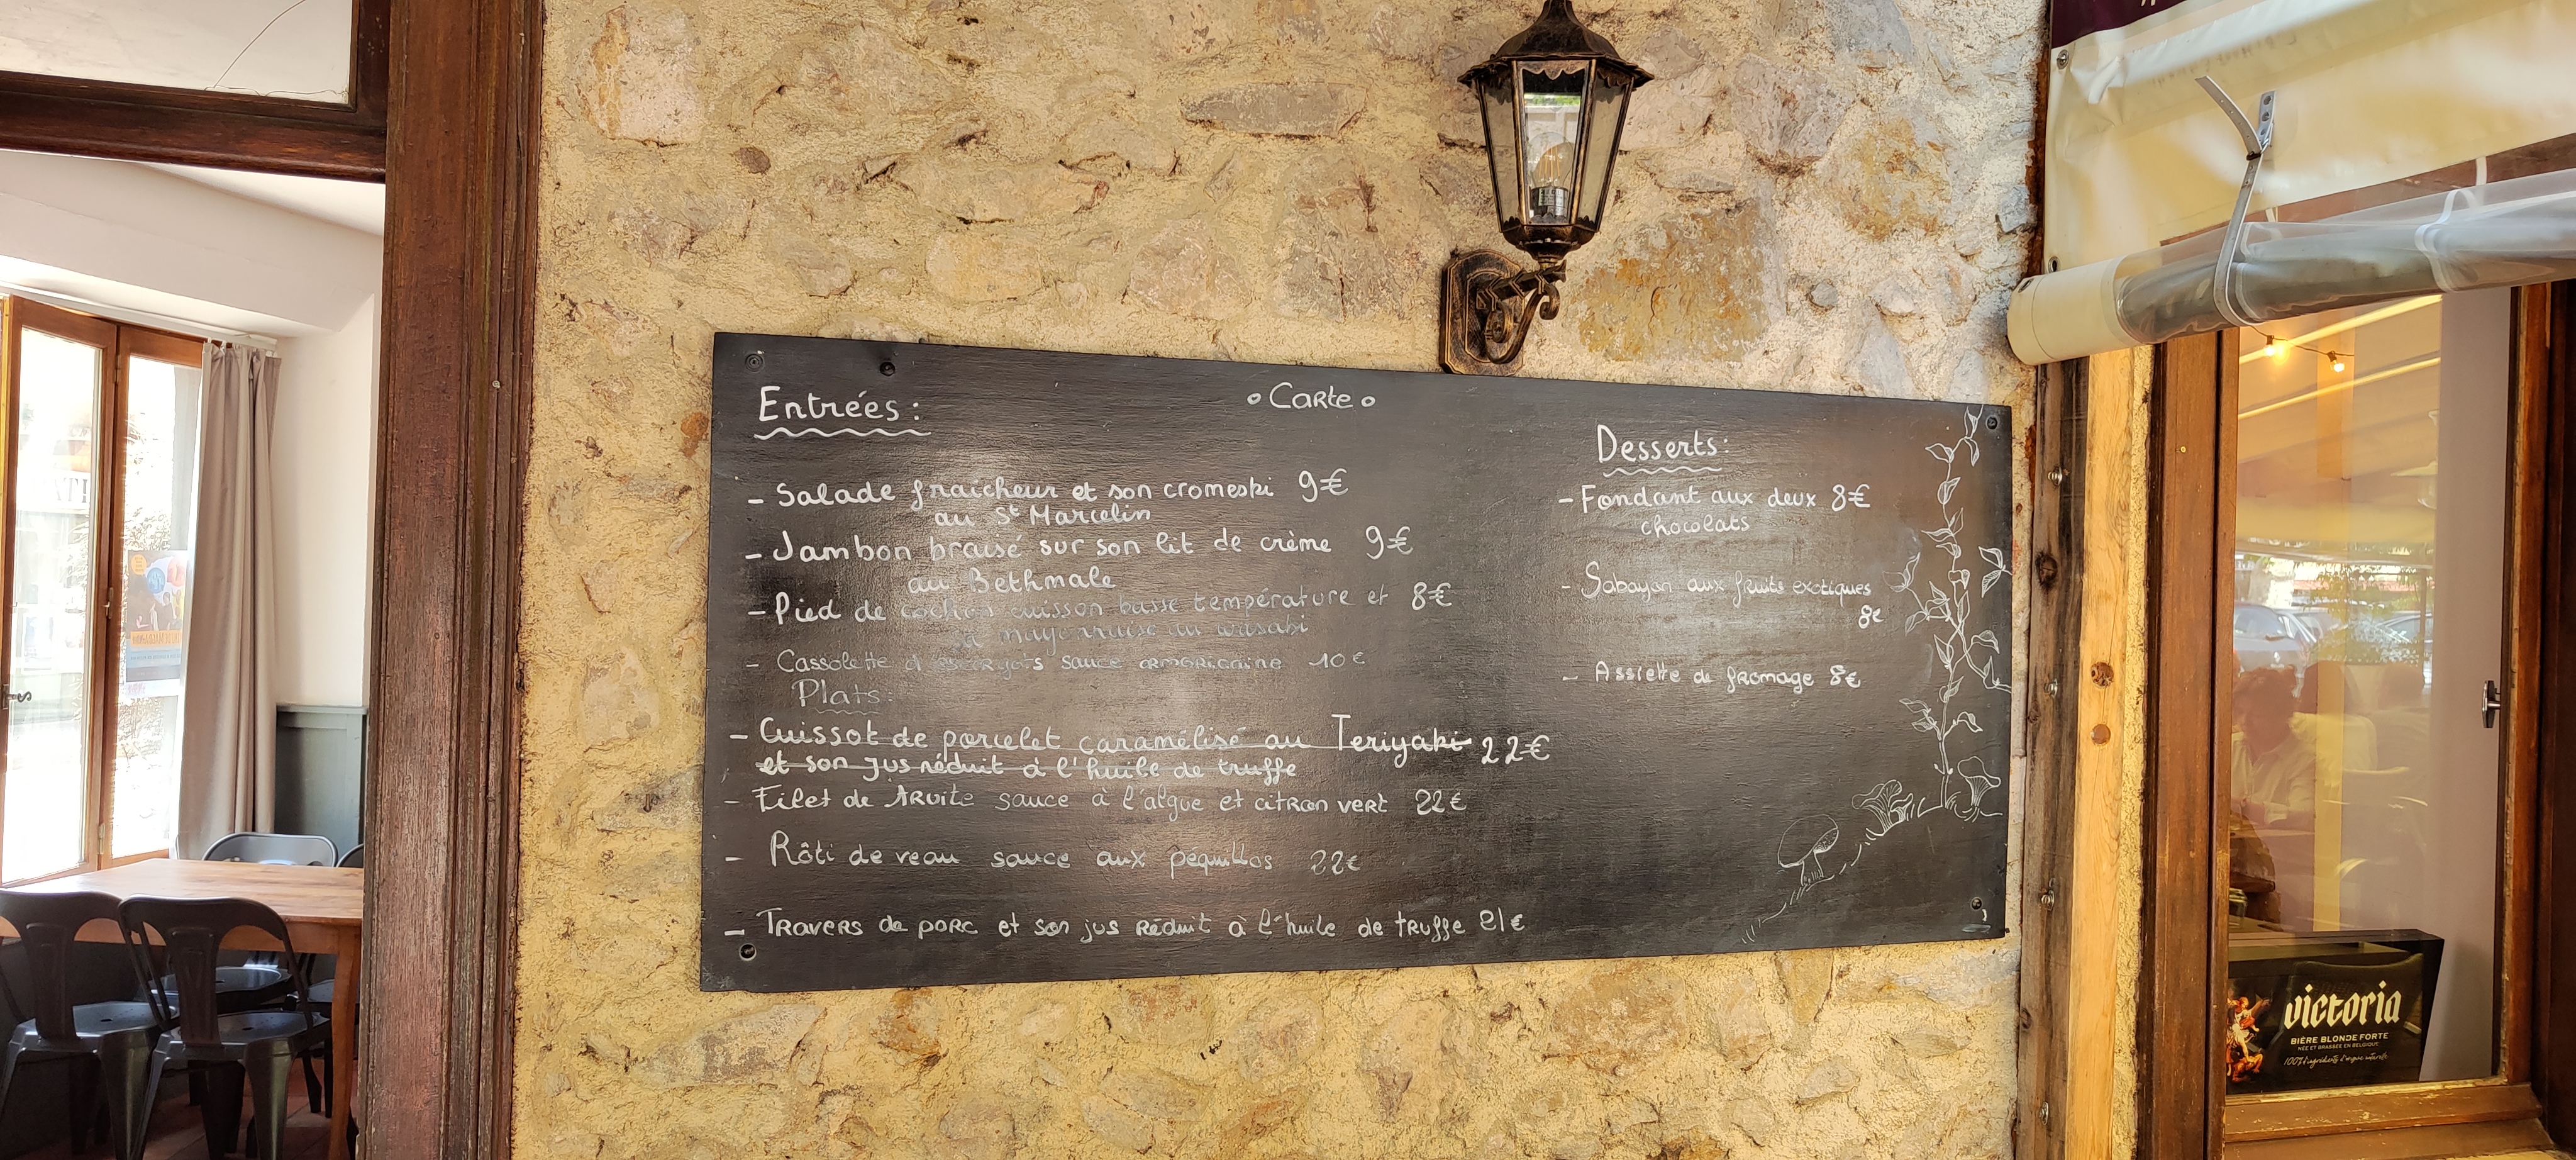 Entrées :
∘ Carte ∘
- Salade fraîcheur et son cromeski 9€
au St Marcelin
- Jambon braisé sur son lit de crème 9€
au Bethmale
- Pied de cochon cuisson basse température et 8€
sa mayonnaise au wasabi
- Cassolette d'escargots sauce armoricaine 10€
Plats.
- Cuissot de porcelet caramélisé au Teriyaki 22€
et son jus réduit à l'huile de truffe
- Filet de truite sauce à l'algue et citron vert 22€
- Rôti de veau sauce aux péquillos 22€
- Travers de porc et son jus réduit à l'huile de truffe 21€
Desserts:
- Fondant aux deux 8€
chocolats
- Sabayon aux fruits exotiques
8€
- Assiette de fromage 8€
victoria
BIÈRE BLONDE FORTE
NÉE ET BRASSÉE EN BELGIQUE
100% ingrédients d'origine naturelle